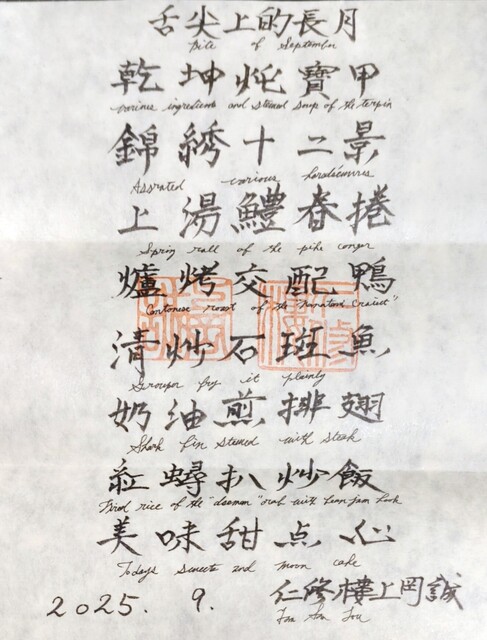 舌尖上的長月
Bite of September
乾坤炖寶甲
various ingredients and stewed soup of the terpin
錦綉十二景
various
上湯鱧春捲
Spring roll of the pike conger
爐烤交配鴨
Cantonese roast of the
清炒石斑魚
Grouper fry it plainly
奶油煎排翅
Shark fin stewed with steak
紅蟳扒炒飯
Fried rice of the with
美味甜点心
Todays sweets and moon cake
2025. 9. 仁修樓上岡誠